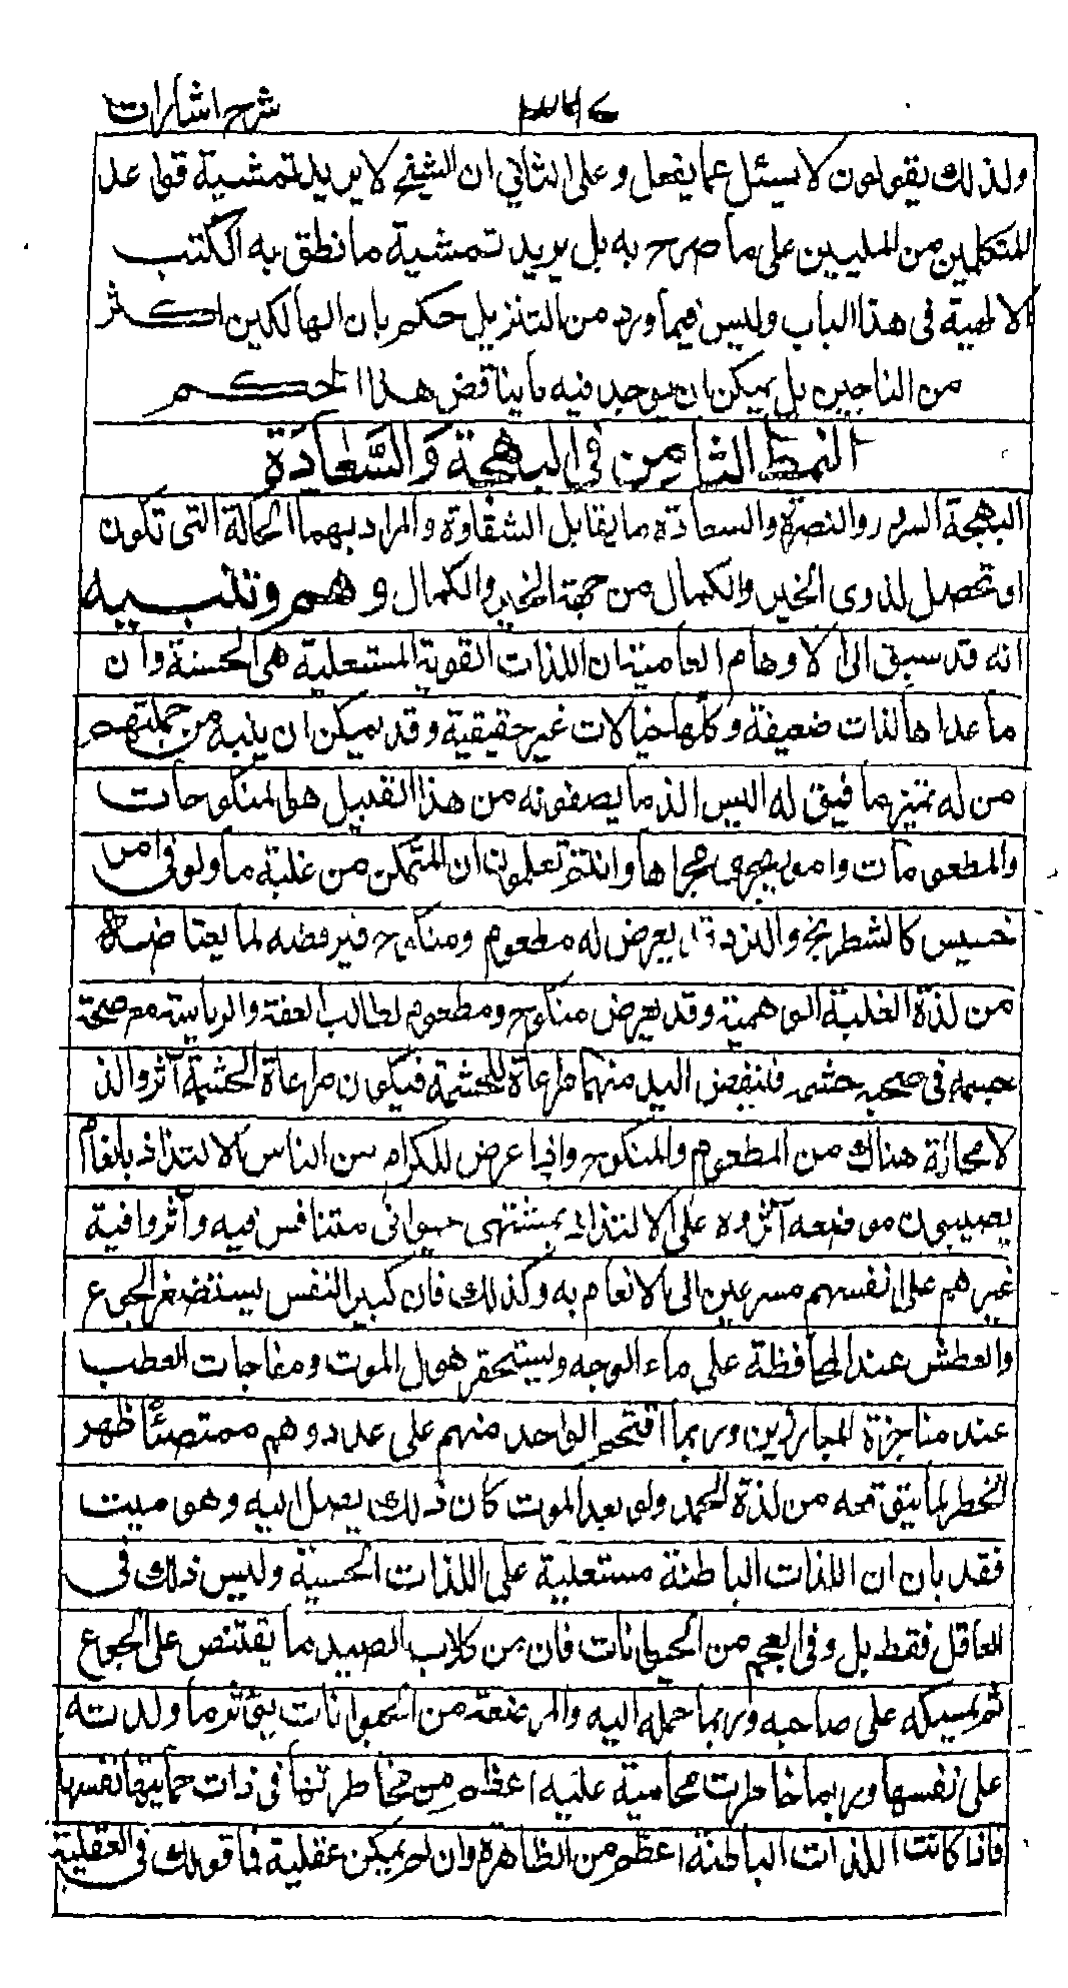 شرح اشارات
ولذلك يقولون لا يسئل عما يفعل وعلى الثاني ان الشيخ لا يريد تمشية قواعد
المتكلمين من المليين على ما صرح به بل يريد تمشية ما نطق به الكتب
الالهية في هذا الباب وليس فيما ورد من التنزيل حكم بان الهالكين اكثر
من الناجين بل يمكن ان يوجد فيه ما يناقض هذا الحكم
النمط الثامن في البهجة وَالسَّعادَة
البهجة السرور والنضرة والسعادة ما يقابل الشقاوة والمراد بهما الحالة التي تكون
او تحصل لذوى الخير والكمال من جهة الخير والكمال وهم وتنبيه
انه قد سبق الى الاوهام العامية ان اللذات القوية المستعلية هي الحسية وان
ما عداها لذات ضعيفة وكلها خيالات غير حقيقية وقد يمكن ان ينبه من جملتهم
من له تميز ما فيق له اليس الذ ما يصفونه من هذا القبيل هو المنكوحات
والمطعومات وامور يجرى مجراها وانتم تعلمون ان المتمكن من غلبة ما ولو في امر
خسيس كالشطرنج والنرد قد يعرض له مطعوم ومنكوح فيرفضه لما يعتاضه
من لذة الغلبة الوهمية وقد يعرض منكوح ومطعوم لطالب العفة والرياسة مع صحة
جسمه في صحبة حشمه فينفض اليد منهما مراعاة للحشمة فيكون مراعاة الحشمة آثر والذ
لا محالة هناك من المطعوم والمنكوح واذا عرض للكرام من الناس الالتذاذ بانعام
يصيبون موضعه آثروه على الالتذاذ بمشتهى حيواني متنافس فيه وآثروا فيه
غيرهم على انفسهم مسرعين الى الانعام به وكذلك فان كبير النفس يستصغر الجوع
والعطش عند المحافظة على ماء الوجه ويستحقر هول الموت ومفاجات العطب
عند مناجزة المبارزين وربما اقتحم الواحد منهم على عدد دهم ممتصئًا ظهر
الخطر لما يتوقعه من لذة الحمد ولو بعد الموت كان ذلك يصل اليه وهو ميت
فقد بان ان اللذات الباطنة مستعلية على اللذات الحسية وليس ذلك في
العاقل فقط بل وفي العجم من الحيوانات فان من كلاب الصيد ما يقتنص على الجوع
ثم يمسكه على صاحبه وربما حمله اليه والمرضعة من الحيوانات يؤثر ما ولدته
على نفسها وربما خاطرت محامية عليه اعظم من مخاطرتها في ذات حمايتها نفسها
فاذا كانت اللذات الباطنة اعظم من الظاهرة وان لم يكن عقلية فما قولك في العقلية